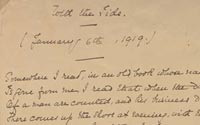 With the Tide.
(January 6th, 1919.)
Somewhere I read, in an old book whose name
Is gone from me, I read that when the days
Of a man are counted, and his business done,
There comes up the shore at evening, with the